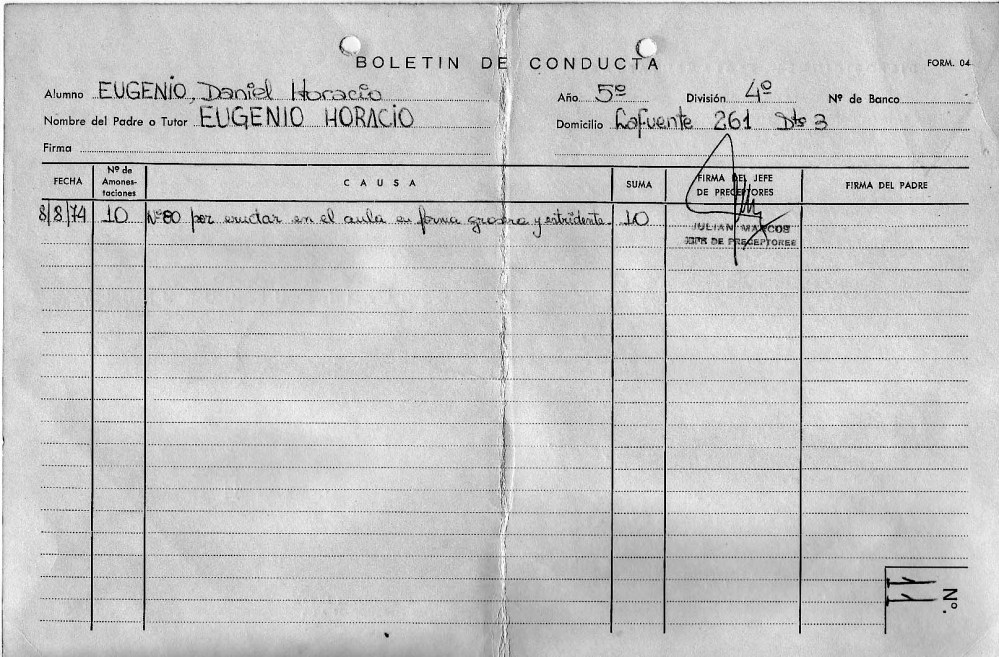 BOLETIN DE CONDUCTA
FORM. 04
Alumno EUGENIO, Daniel Horacio Año 5º División 4º Nº de Banco
Nombre del Padre o Tutor EUGENIO HORACIO Domicilio Lafuente 261 Dto 3
Firma
FECHA Nº de Amonestaciones CAUSA SUMA FIRMA DEL JEFE DE PRECEPTORES FIRMA DEL PADRE
8/8/74 10 Nº80 por eructar en el aula en forma grosera y estridente. 10
JULIAN MARCOS
JEFE DE PRECEPTORES
Nº.